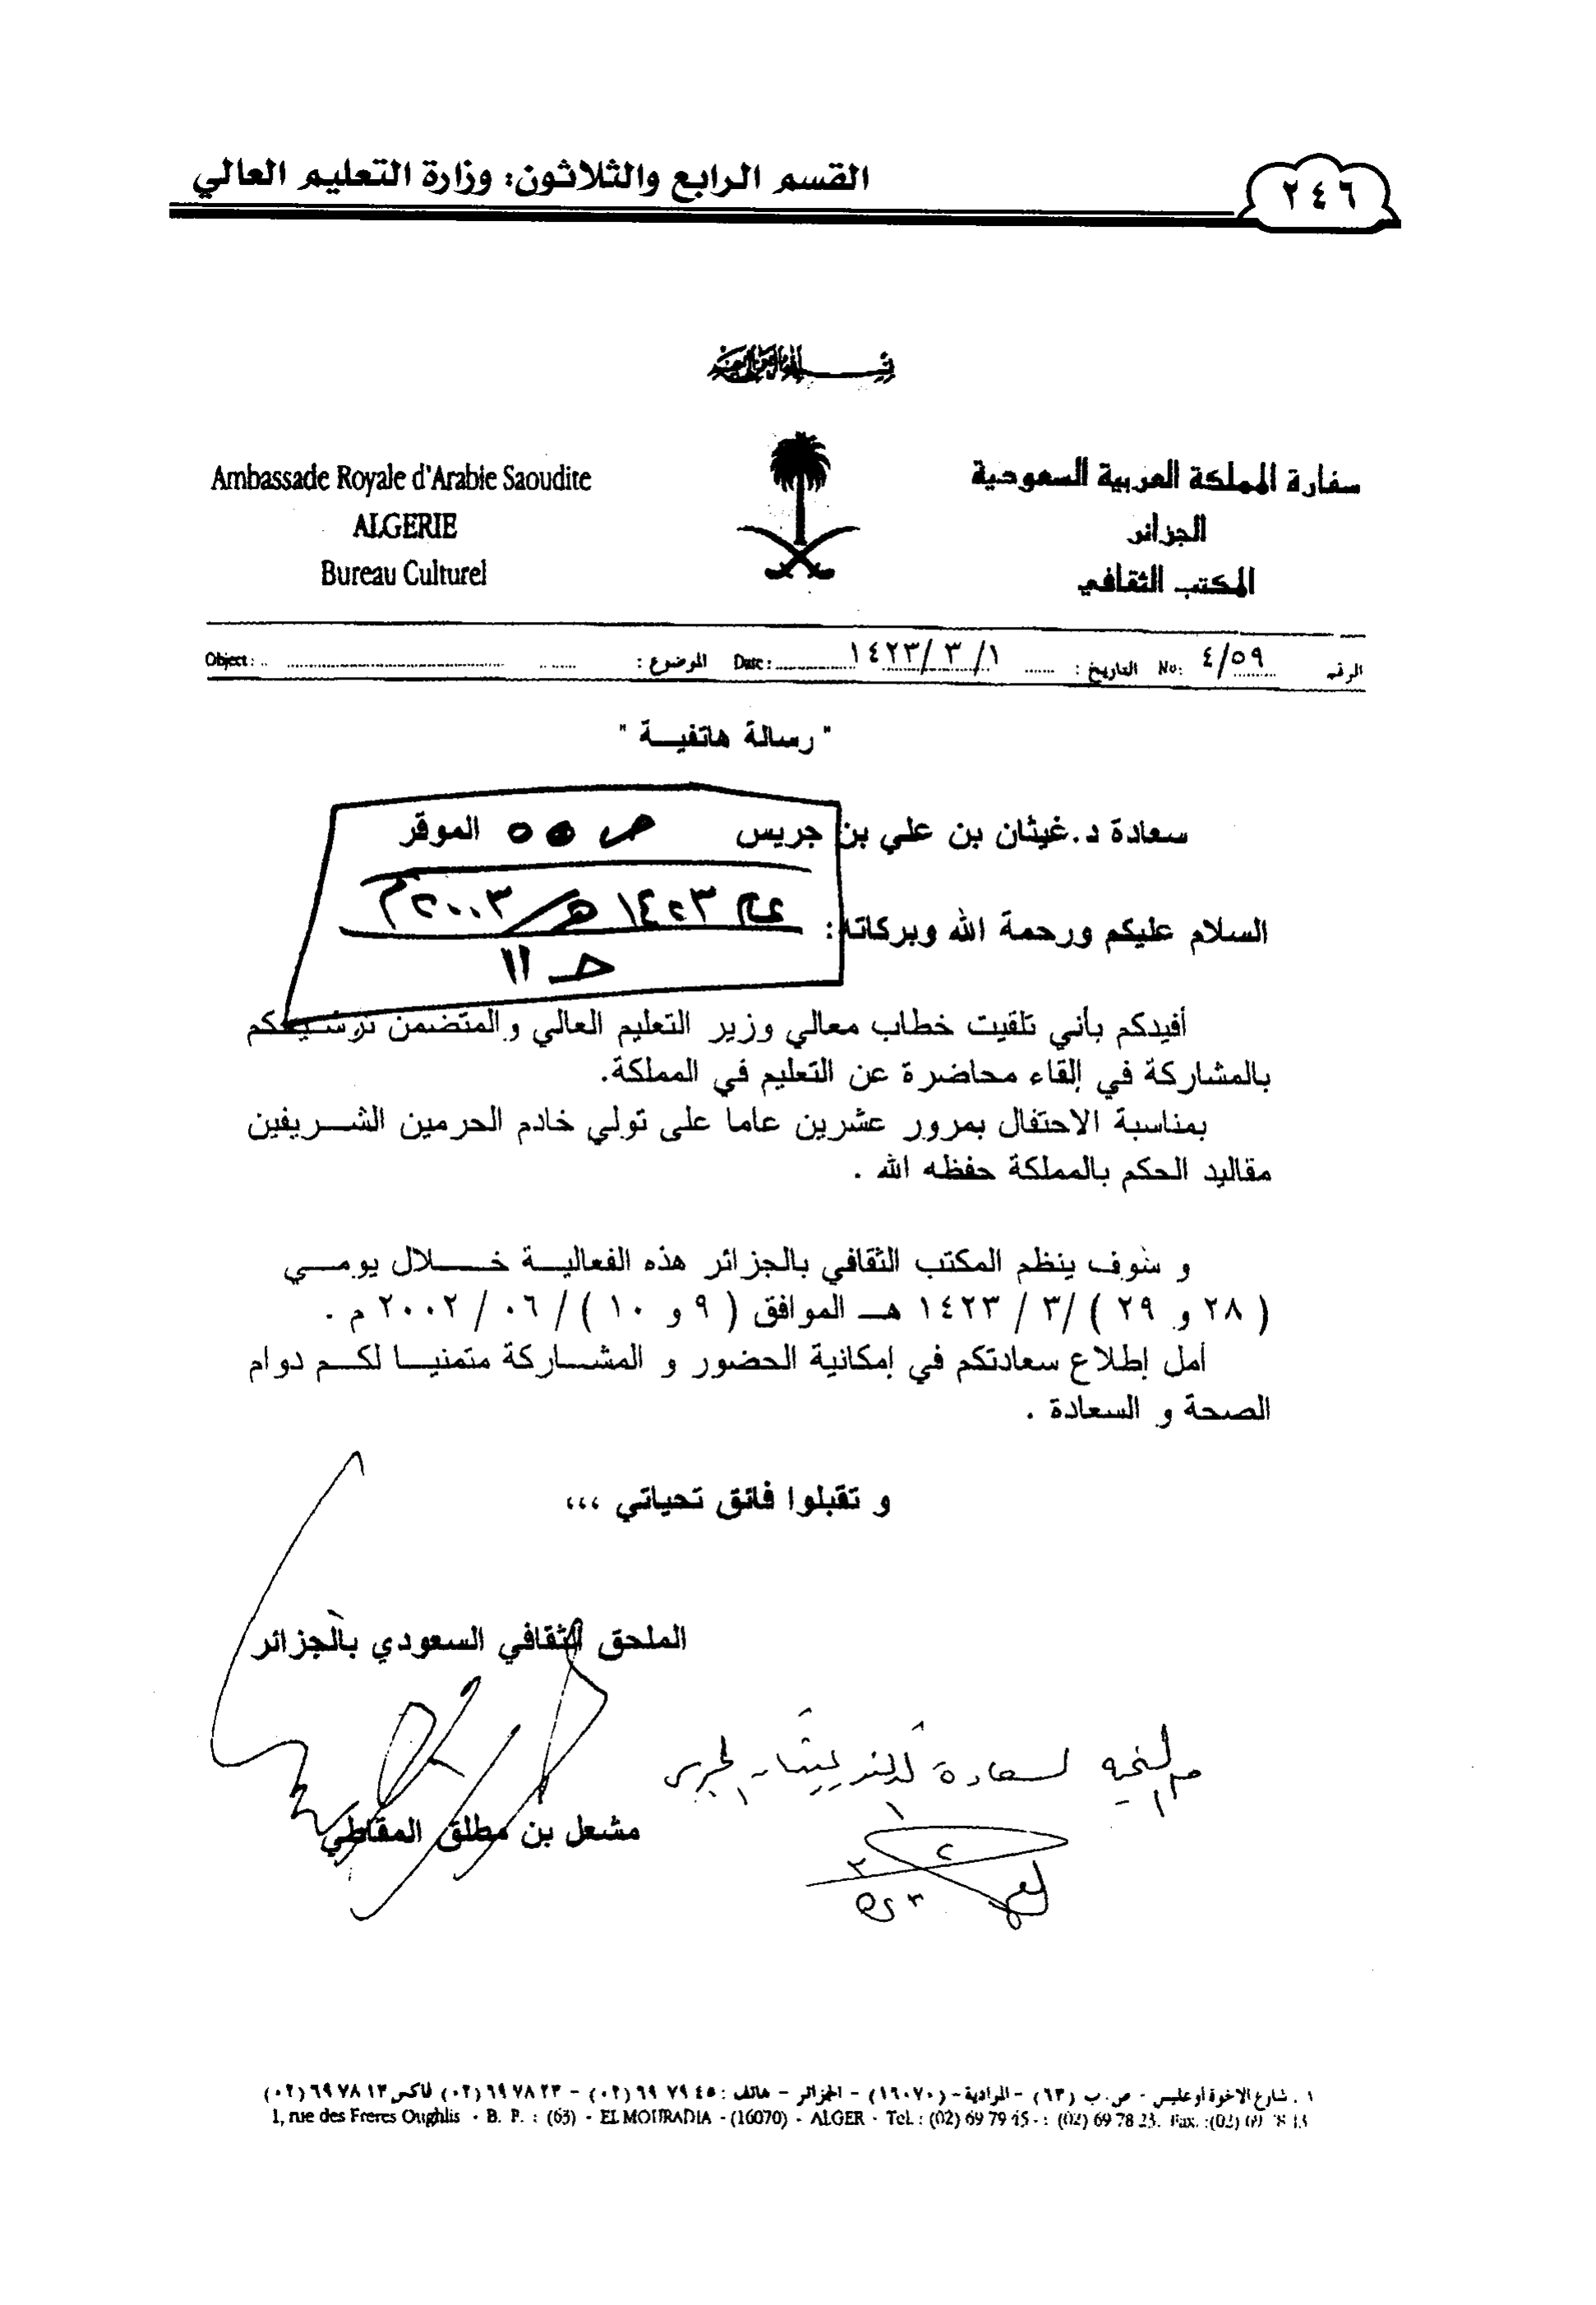 القسم الرابع والثلاثون: وزارة التعليم العالي
٢٤٦
بسم الله الرحمن الرحيم
سفارة المملكة العربية السعودية
الجزائر
المكتب الثقافي
Ambassade Royale d'Arabie Saoudite
ALGERIE
Bureau Culturel
الرقم ٤/٥٩ No: التاريخ : ١٤٢٣/٣/١ Date: الموضوع : Object:
" رسالة هاتفية "
سعادة د.غيثان بن علي بن جريس الموقر
ص ٥٥٠
السلام عليكم ورحمة الله وبركاته:
١٤٢٣هـ/٢٠٠٣م
حـ ١١
أفيدكم بأني تلقيت خطاب معالي وزير التعليم العالي والمتضمن ترشيحكم
بالمشاركة في إلقاء محاضرة عن التعليم في المملكة.
بمناسبة الاحتفال بمرور عشرين عاما على تولي خادم الحرمين الشريفين
مقاليد الحكم بالمملكة حفظه الله .
و سوف ينظم المكتب الثقافي بالجزائر هذه الفعالية خلال يومي
( ٢٨ و ٢٩ )/٣ / ١٤٢٣ هـ الموافق ( ٩ و ١٠ )/ ٠٦ / ٢٠٠٢ م .
أمل إطلاع سعادتكم في إمكانية الحضور و المشاركة متمنيا لكم دوام
الصحة و السعادة .
و تقبلوا فائق تحياتي ،،،
الملحق الثقافي السعودي بالجزائر
مشعل بن مطلق المقاطي
١ . شارع الاخوة أوغليس - ص.ب (٦٣) - المرادية - (١٦٠٧٠) - الجزائر - هاتف : ٤٥ ٧٩ ٦٩ (٠٢) - ٢٣ ٧٨ ٦٩ (٠٢) فاكس ١٣ ٧٨ ٦٩ (٠٢)
1, rue des Freres Oughlis - B. P. : (63) - EL MOURADIA - (16070) - ALGER - Tel. : (02) 69 79 45 - : (02) 69 78 23. Fax. :(02) 69 78 13